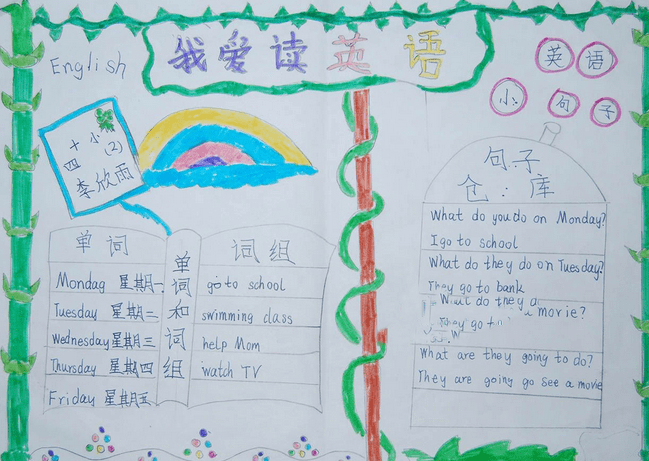 English
我爱读英语
英语
小句子
十小
四(2)
李欣雨
单词
Monday 星期一
Tuesday 星期二
Wednesday 星期三
Thursday 星期四
Friday 星期五
单词和词组
词组
go to school
swimming class
help Mom
watch TV
句子
仓:库
What do you do on Monday?
I go to school
What do they do on Tuesday?
They go to bank
What do they
a movie?
They go to
What are they going to do?
They are going go see a movie